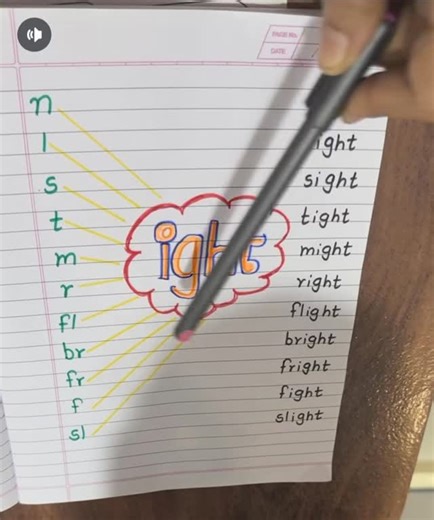 PAGE No.
DATE:
n
l
s
t
m
r
fl
br
fr
f
sl
ight
ight
sight
tight
might
right
flight
bright
fright
fight
slight